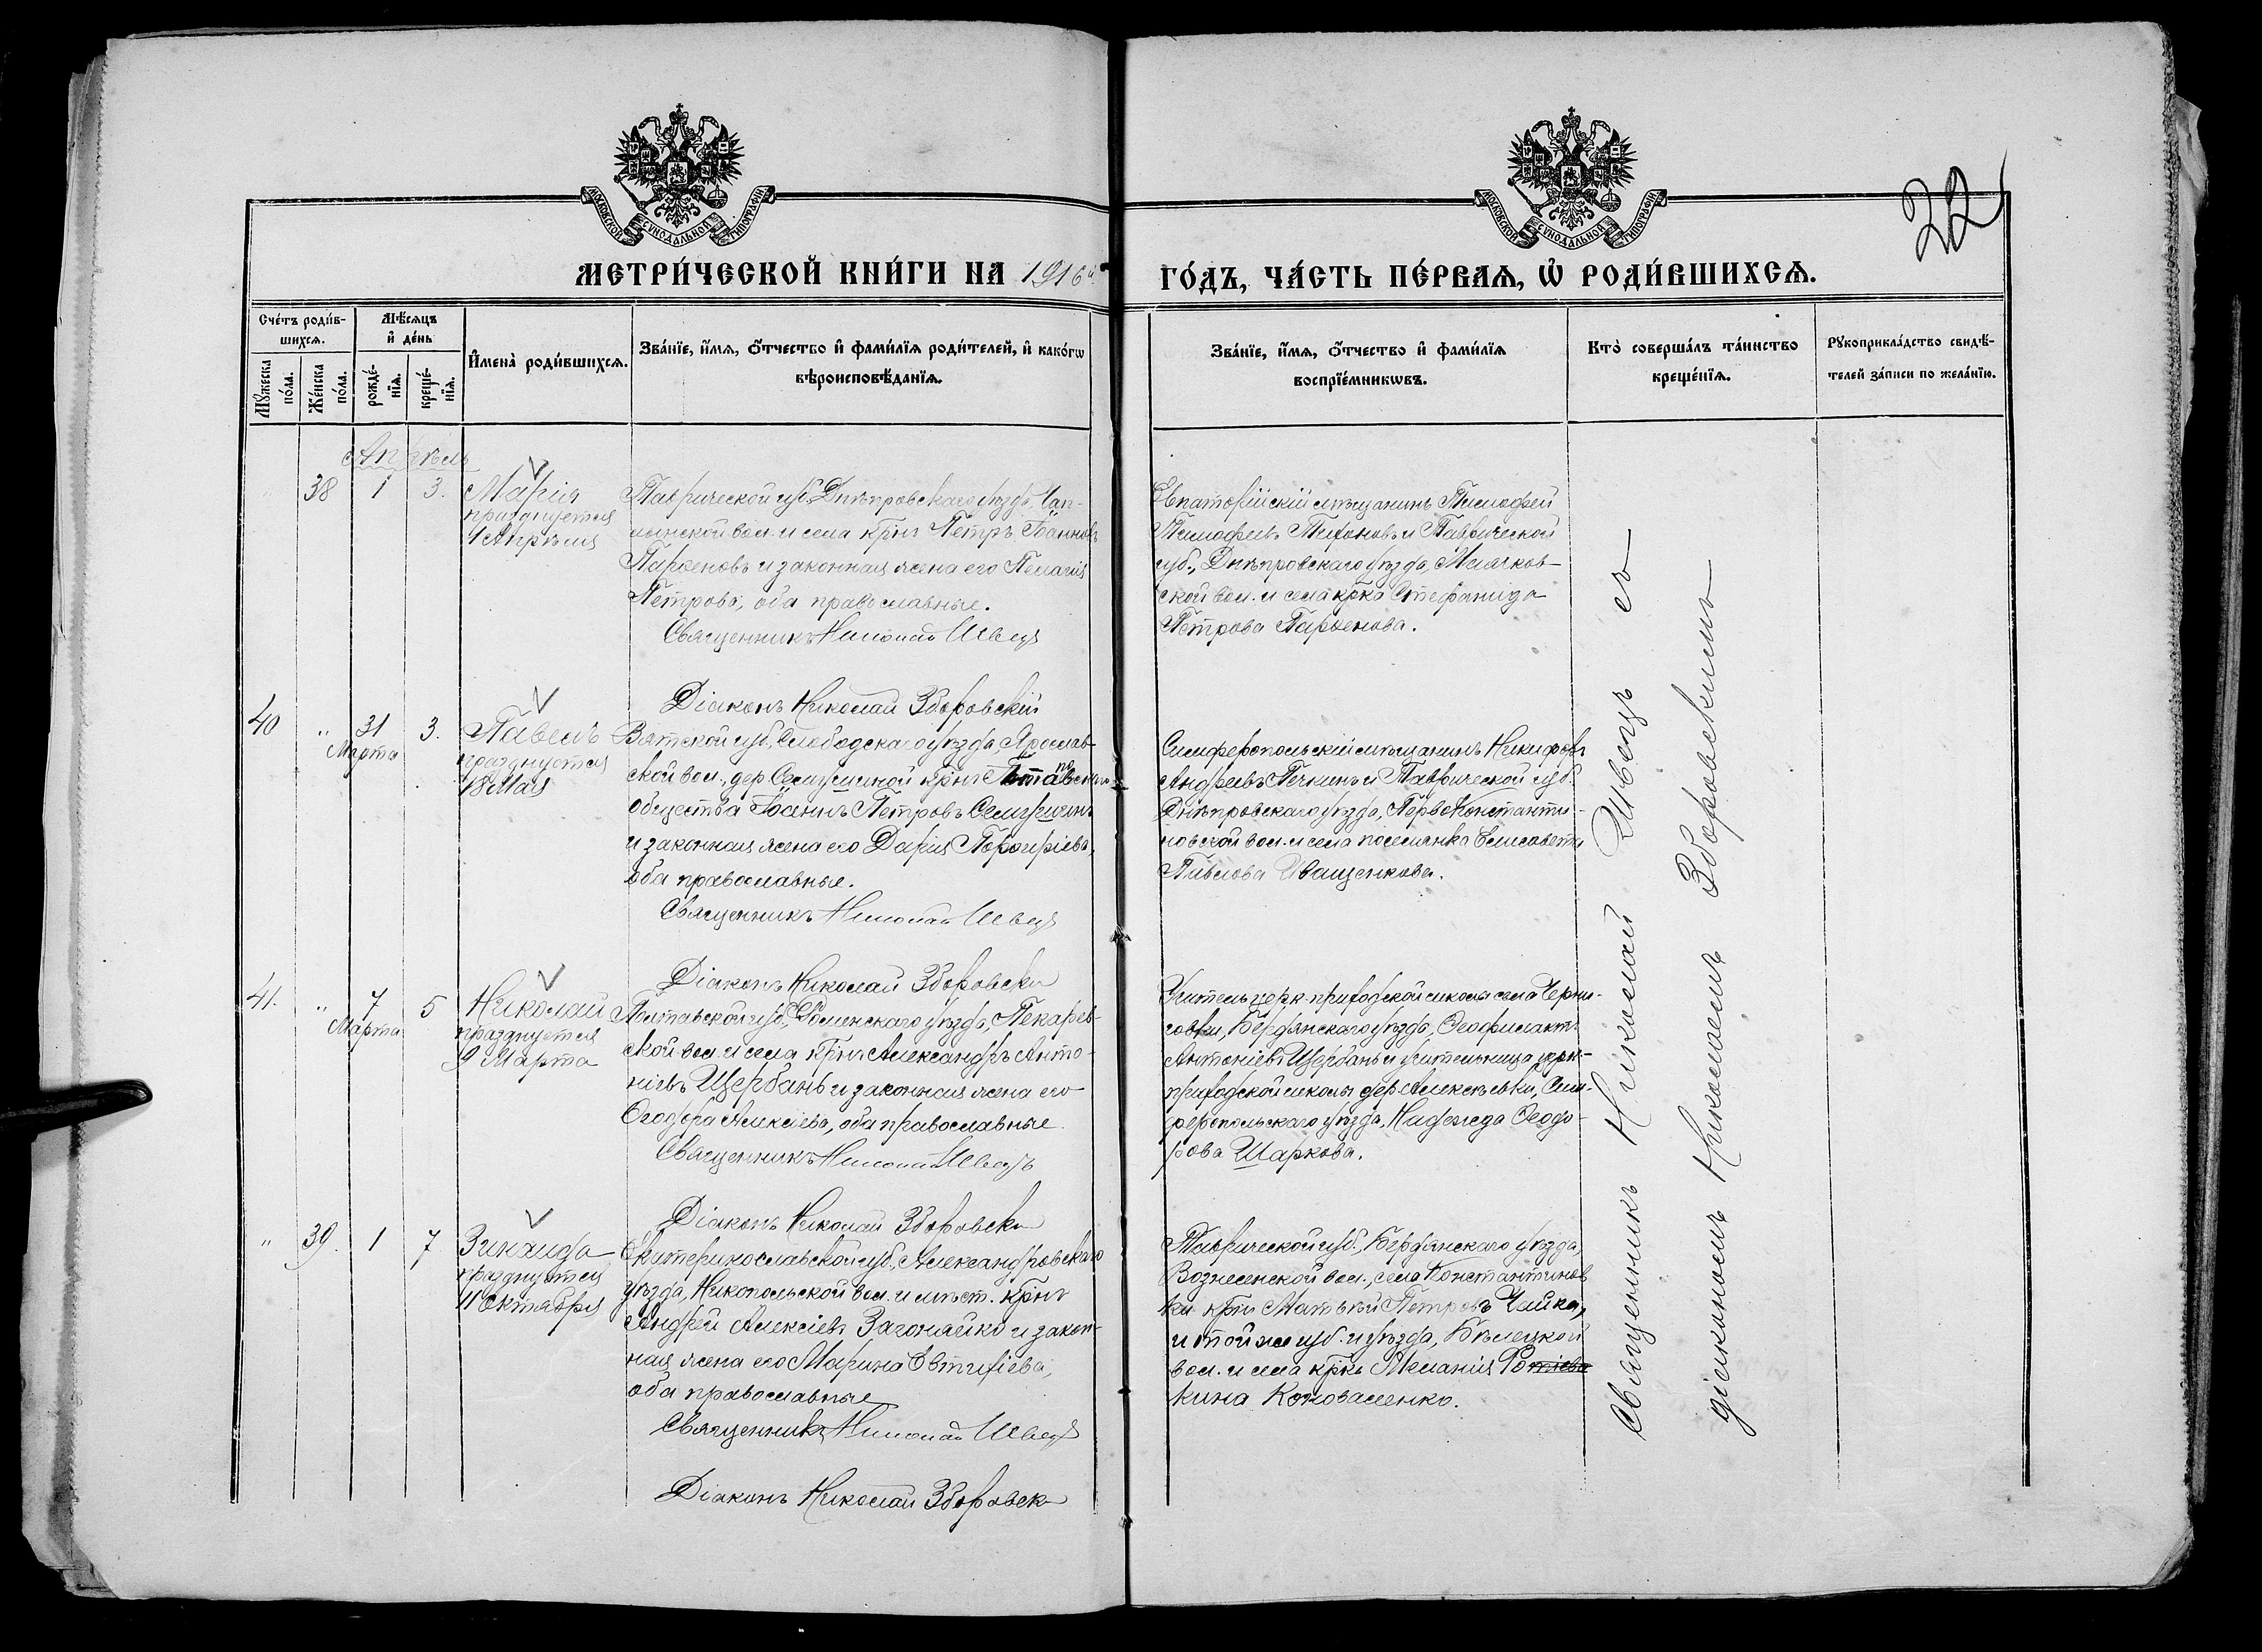 22
МОСКОВСКОЙ СУНОДАЛЬНОЙ ТИПОГРАФІИ
МОСКОВСКОЙ СУНОДАЛЬНОЙ ТИПОГРАФІИ
МЕТРИ́ЧЕСКОЙ КНИ́ГИ НА 1916й
ГО́ДЪ, ЧА́СТЬ ПЕ́РВАѦ, Ѡ РОДИ́ВШИХСѦ.
Сче́тъ роди́в-
шихсѧ.
Мꙋжеска
по́ла.
Же́нска
по́ла.
Мѣ́сѧцъ
и҆ де́нь
рожде́-
нїѧ.
креще́-
нїѧ.
И҆мена̀ роди́вшихсѧ.
Зва́нїе, и҆́мѧ, ѻ҆́тчество и҆ фами́лїѧ роди́телей, и҆ како́гѡ
вѣроисповѣ́данїѧ.
Зва́нїе, и҆́мѧ, ѻ҆́тчество и҆ фами́лїѧ
воспрїе́мникѡвъ.
Кто̀ соверша́лъ та́инство
креще́нїѧ.
Рꙋкоприкла́дство свидѣ́-
телей за́писи по жела́нїю.
Апрѣль
38 1 3.
Марія
празднуется
1 Апрѣля
Таврической губ., Днѣпровскаго уѣзда, Чап-
лынской вол. и села крнъ Петръ Іоанновъ
Парѳеновъ и законная жена его Пелагія
Петрова, оба православные.
Священникъ Николай Швецъ
Діаконъ Николай Зборовскій
Евпаторійскій мѣщанинъ Тимофей
Тимофеевъ Тихоновъ и Таврической
губ., Днѣпровскаго уѣзда,
ской вол. и села крка Стефанида
Петрова Парѳенова.
40 " 31 3.
Марта
Павелъ
празднуется
18 Мая
Вятской губ., Слободскаго уѣзда, Ярослав-
ской вол., дер. крнъ
общества Іоаннъ Петровъ
и законная жена его Дарія Порфиріева,
оба православные.
Священникъ Николай Швецъ
Діаконъ Николай Зборовскій
Симферопольскій мѣщанинъ Никифоръ
Андреевъ Печкинъ и Таврической губ.
Днѣпровскаго уѣзда, Перво-Константи-
новской вол. и села поселянка Елисавета
Павлова Иващенкова.
41. " 7 5
Марта
Николай
празднуется
9 Марта
Полтавской губ., Роменскаго уѣзда, Пекарев-
ской вол. и села крнъ Александръ Анто-
ніевъ Щербань и законная жена его
Ѳеодора Алексіева, оба православные.
Священникъ Николай Швецъ
Діаконъ Николай Зборовскій
Учитель церк.-приходской школы села Черни-
говки, Бердянскаго уѣзда, Ѳеофилактъ
Антоніевъ Щербань и учительница церк.-
приходской школы дер. Алексѣевки, Сим-
феропольскаго уѣзда, Надежда Ѳеодо-
рова Шаркова.
" 39. 1 7
Зинаида
празднуется
11 Октября
Екатеринославской губ., Александровскаго
уѣзда, Никопольской вол. и мѣст. крнъ
Андрей Алексіевъ Загонайко и закон-
ная жена его Марина Евтихіева,
оба православные
Священникъ Николай Швецъ
Діаконъ Николай Зборовск
Таврической губ., Бердянскаго уѣзда,
Вознесенской вол., села Константинов
ки крнъ Матѳей Петровъ Чайка,
и той же губ. и уѣзда,
вол. и села крка Меланія
кина Коноваленко.
Священникъ Николай Швецъ съ
діакономъ Николаемъ Зборовскимъ